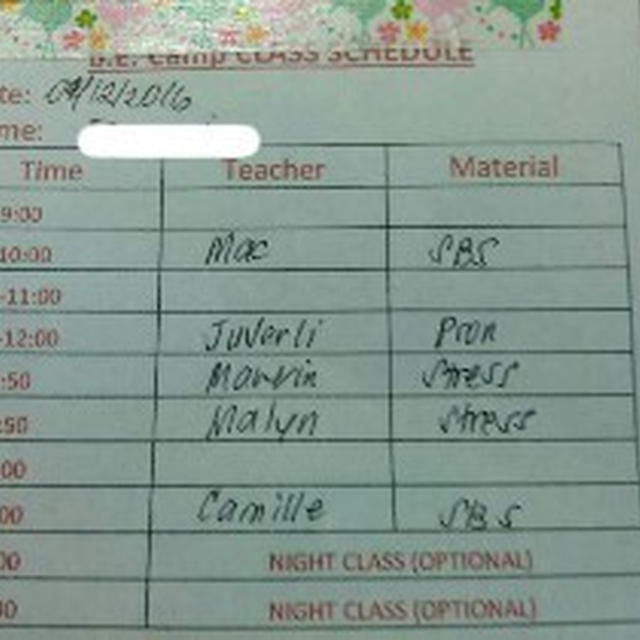 B.E. Camp CLASS SCHEDULE
te: 09/12/2016
me:
Time Teacher Material
9:00
10:00 Mac SBS
-11:00
-12:00 Juverli Pron
:50 Marvin Stress
:50 Malyn Stress
00
00 Camille SBS
00 NIGHT CLASS (OPTIONAL)
30 NIGHT CLASS (OPTIONAL)